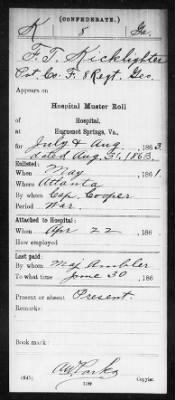 (CONFEDERATE.)
K 8 Ga.
F. T. Kicklighter
Pvt. Co. F. 8 Regt. Geo.
Appears on
Hospital Muster Roll
of Hospital,
at Huguenot Springs, Va.,
for July & Aug, 1863.
dated Aug. 31, 1863.
Enlisted:
When May, 1861.
Where Atlanta
By whom Cap. Cooper
Period War.
Attached to Hospital:
When Apr 22, 186
How employed
Last paid:
By whom Maj. Ambler
To what time June 30, 186
Present or absent Present.
Remarks:
Book mark:
Parks
Copyist.